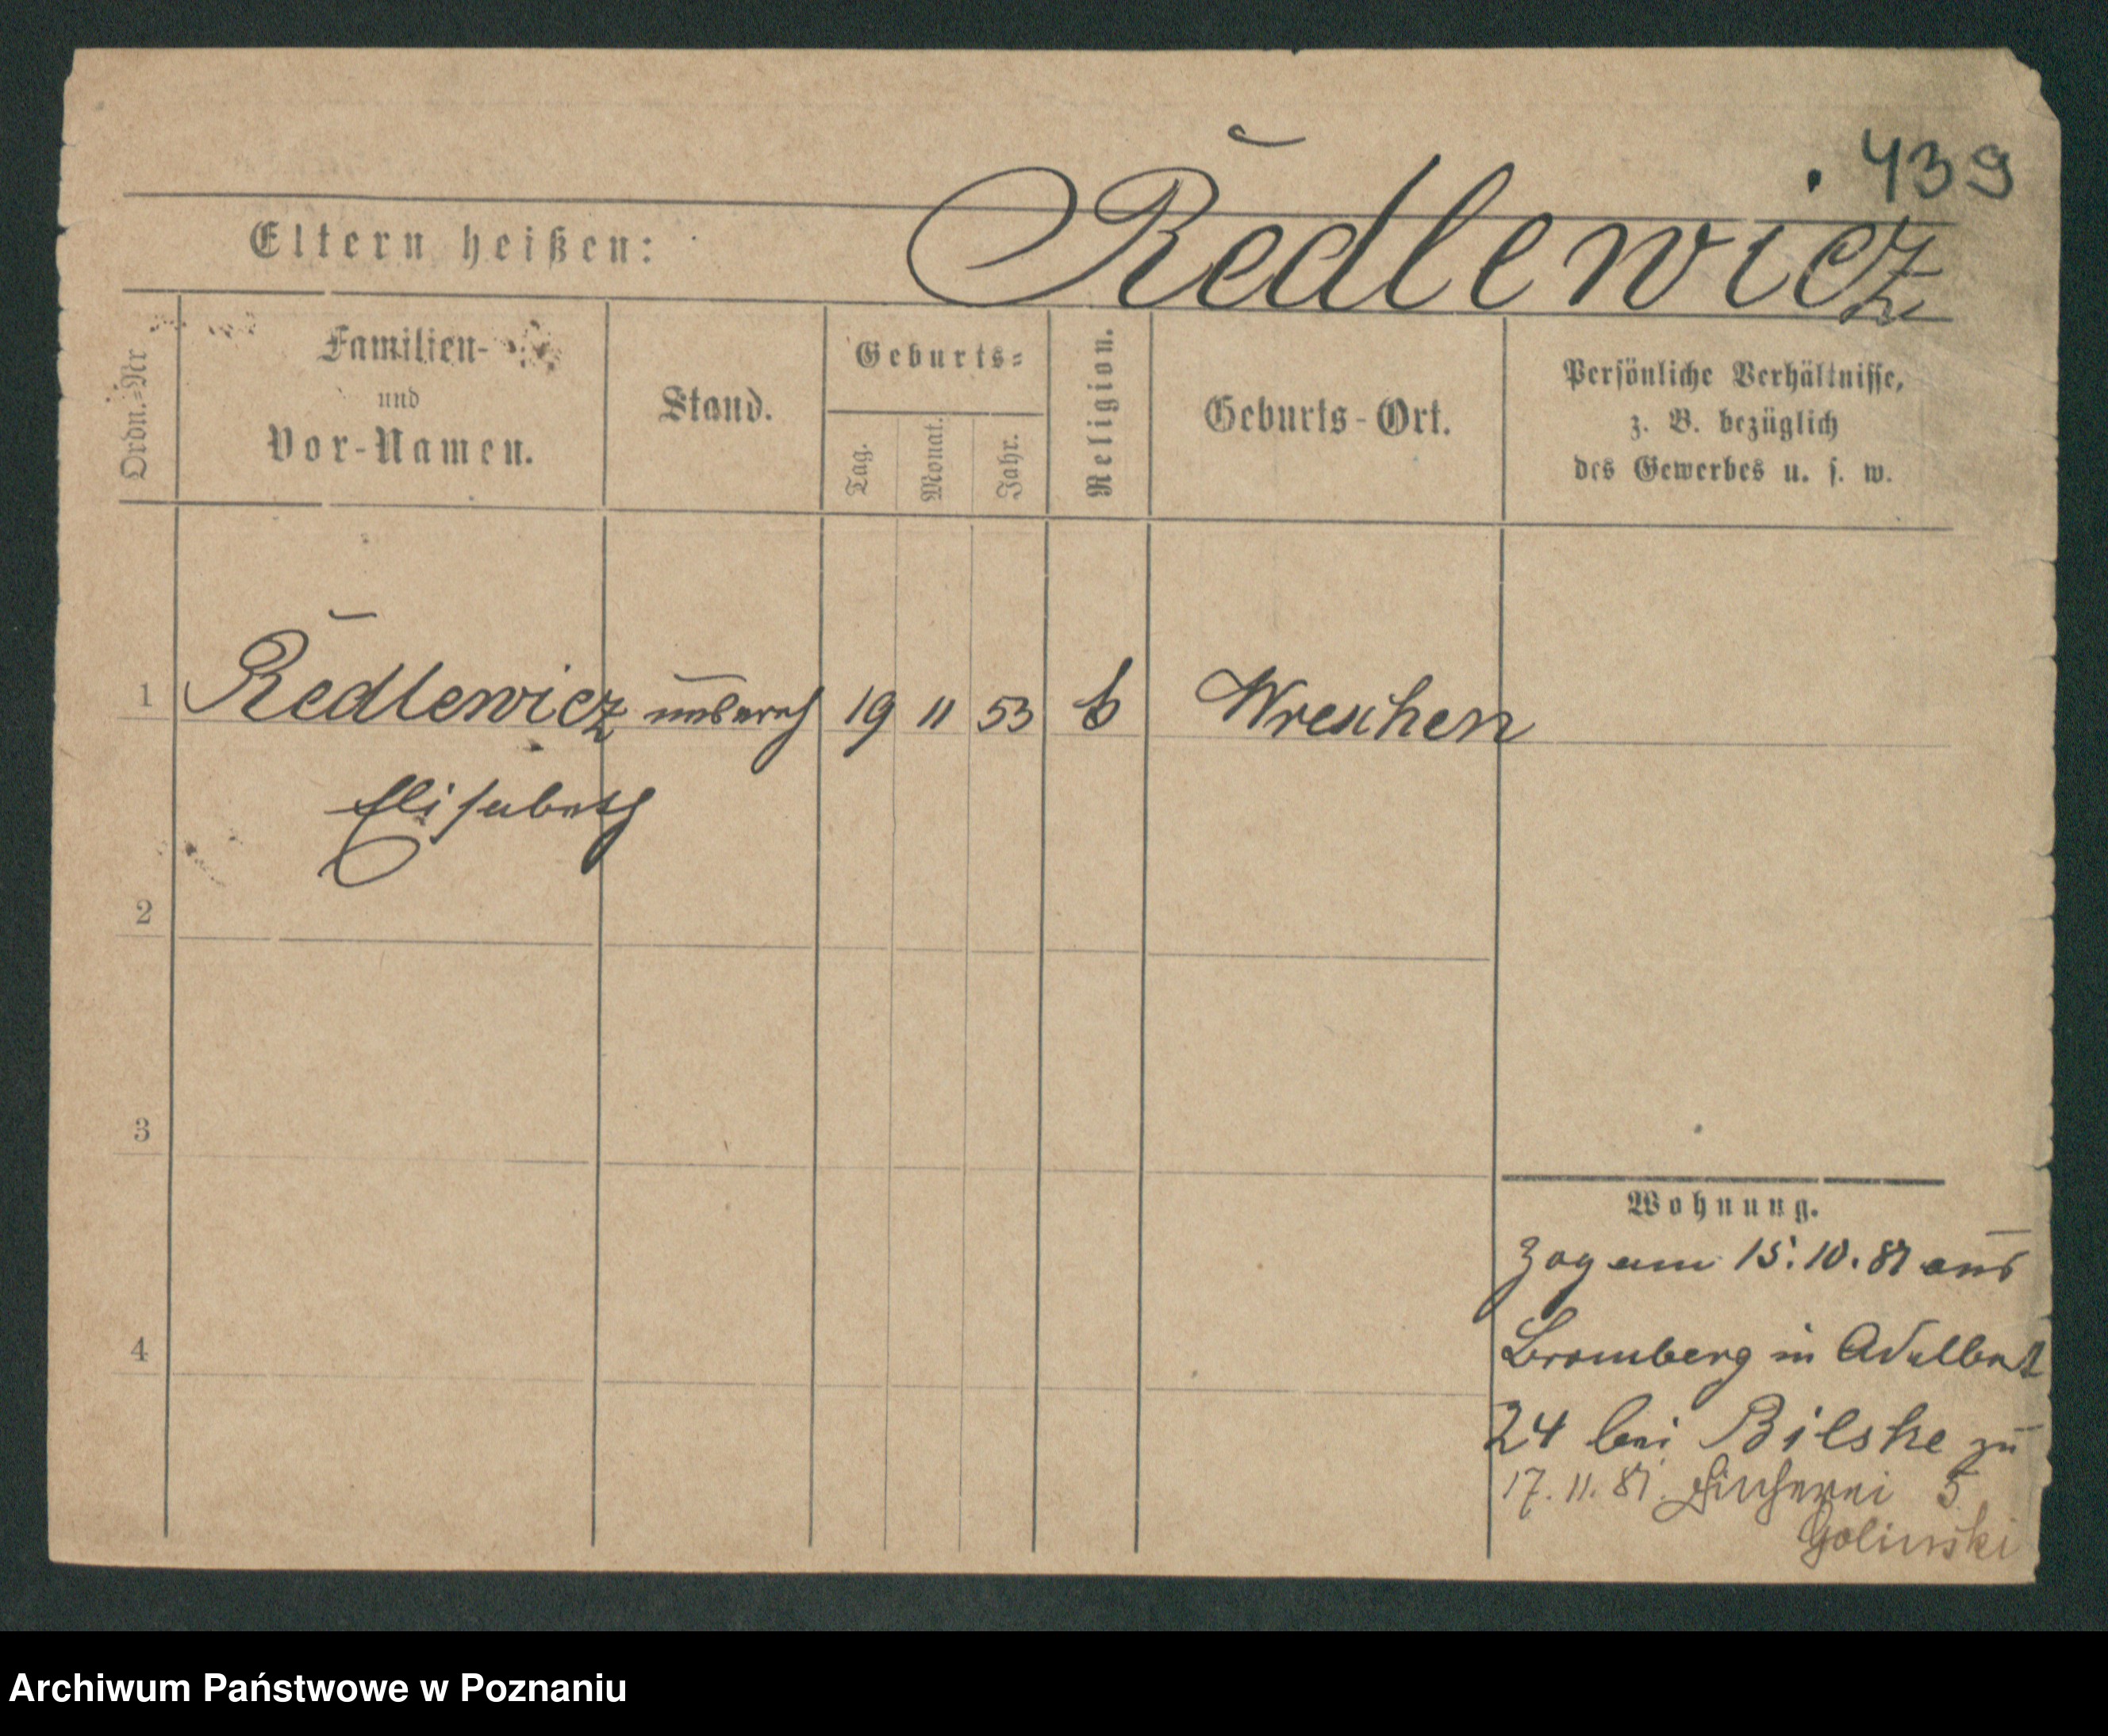 439
Redlewicz
Eltern heißen:
Ordn.-Nr
Familien-
und
Vor-Namen.
Stand.
Geburts-
Tag.
Monat.
Jahr.
Religion.
Geburts-Ort.
Persönliche Verhältnisse,
z. B. bezüglich
des Gewerbes u. s. w.
1 Redlewicz unvereh 19 11 53 k Wreschen
Elisabeth
2
3
4
Wohnung.
Zog am 15.10.81 aus
Bromberg in Adalbert
24 bei Bilske zu
17.11.81. Fischerei 5
Golinski
Archiwum Państwowe w Poznaniu